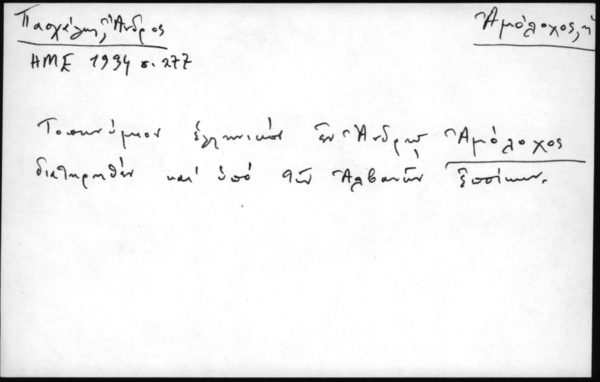 Πασχάλης, Ἄνδρος
Ἀμόλοχος, ἡ
ΗΜΕ 1934 σ. 277
Τοπωνύμιον ἑλληνικὸν ἐν Ἄνδρῳ Ἀμόλοχος
διατηρηθὲν καὶ ὑπὸ τῶν Ἀλβανῶν ἐποίκων.